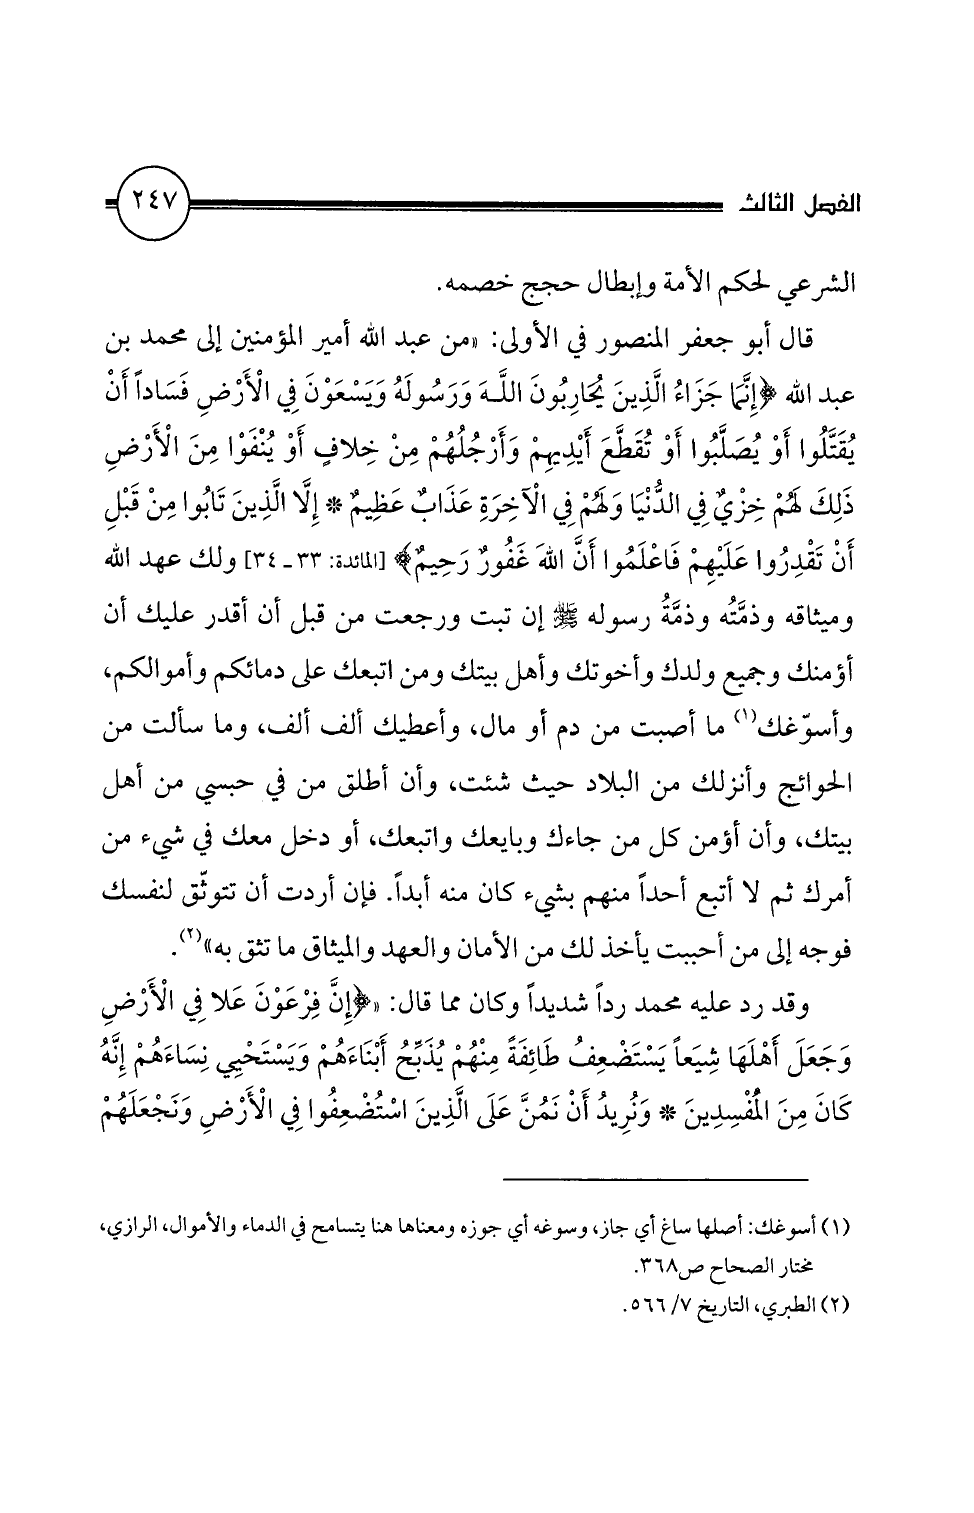 الفصل الثالث ٢٤٧
الشرعي لحكم الأمة وإبطال حجج خصمه.
قال أبو جعفر المنصور في الأولى: «من عبد الله أمير المؤمنين إلى محمد بن
عبد الله ﴿إِنَّمَا جَزَاءُ الَّذِينَ يُحَارِبُونَ اللَّـهَ وَرَسُولَهُ وَيَسْعَوْنَ فِي الْأَرْضِ فَسَاداً أَنْ
يُقَتَّلُوا أَوْ يُصَلَّبُوا أَوْ تُقَطَّعَ أَيْدِيهِمْ وَأَرْجُلُهُمْ مِنْ خِلافٍ أَوْ يُنْفَوْا مِنَ الْأَرْضِ
ذَلِكَ لَهُمْ خِزْيٌ فِي الدُّنْيَا وَلَهُمْ فِي الْآخِرَةِ عَذَابٌ عَظِيمٌ * إِلَّا الَّذِينَ تَابُوا مِنْ قَبْلِ
أَنْ تَقْدِرُوا عَلَيْهِمْ فَاعْلَمُوا أَنَّ اللهَ غَفُورٌ رَحِيمٌ﴾ [المائدة: ٣٣ـ٣٤] ولك عهد الله
وميثاقه وذمَّتُه وذمَّةُ رسوله ﷺ إن تبت ورجعت من قبل أن أقدر عليك أن
أؤمنك وجميع ولدك وأخوتك وأهل بيتك ومن اتبعك على دمائكم وأموالكم،
وأسوّغك(١) ما أصبت من دم أو مال، وأعطيك ألف ألف، وما سألت من
الحوائج وأنزلك من البلاد حيث شئت، وأن أطلق من في حبسي من أهل
بيتك، وأن أؤمن كل من جاءك وبايعك واتبعك، أو دخل معك في شيء من
أمرك ثم لا أتبع أحداً منهم بشيء كان منه أبداً. فإن أردت أن تتوثّق لنفسك
فوجه إلى من أحببت يأخذ لك من الأمان والعهد والميثاق ما تثق به»(٢).
وقد رد عليه محمد رداً شديداً وكان مما قال: «﴿إِنَّ فِرْعَوْنَ عَلا فِي الْأَرْضِ
وَجَعَلَ أَهْلَهَا شِيَعاً يَسْتَضْعِفُ طَائِفَةً مِنْهُمْ يُذَبِّحُ أَبْنَاءَهُمْ وَيَسْتَحْيِي نِسَاءَهُمْ إِنَّهُ
كَانَ مِنَ الْمُفْسِدِينَ * وَنُرِيدُ أَنْ نَمُنَّ عَلَى الَّذِينَ اسْتُضْعِفُوا فِي الْأَرْضِ وَنَجْعَلَهُمْ
(١) أسوغك: أصلها ساغ أي جاز، وسوغه أي جوزه ومعناها هنا يتسامح في الدماء والأموال، الرازي،
مختار الصحاح ص٣٦٨.
(٢) الطبري، التاريخ ٧/ ٥٦٦.